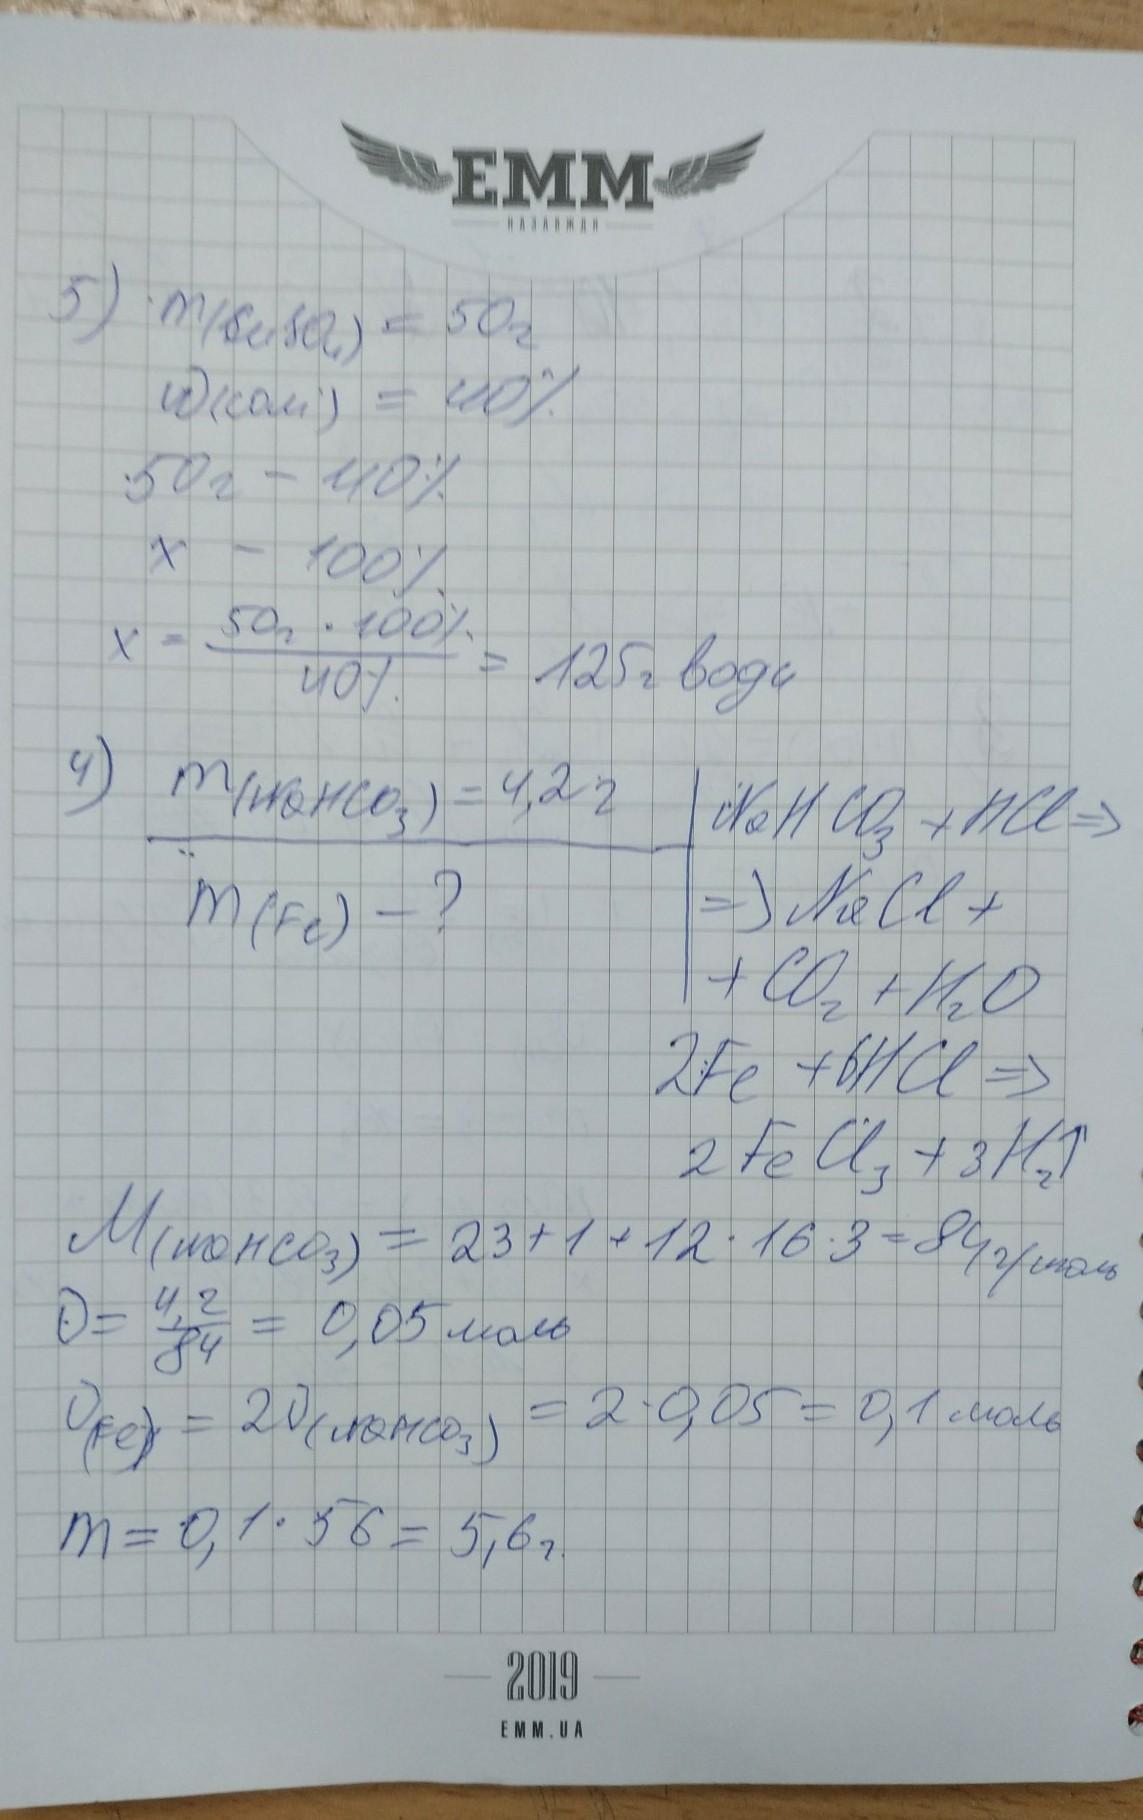 EMM
НАЗАВЖДИ
5) m(CuSO₄) = 50г
ω(солі) = 40%
50г - 40%
x - 100%
x = 50г · 100% / 40% = 125г води
4) m(NaHCO₃) = 4,2 г
m(Fe) - ?
NaHCO₃ + HCl ⇒
⇒ NaCl +
+ CO₂ + H₂O
2Fe + 6HCl ⇒
2FeCl₃ + 3H₂↑
M(NaHCO₃) = 23+1+12·16·3=84г/моль
ν= 4,2/84 = 0,05 моль
ν(Fe) = 2ν(NaHCO₃) = 2·0,05 = 0,1 моль
m = 0,1·56 = 5,6г.
2019
EMM.UA